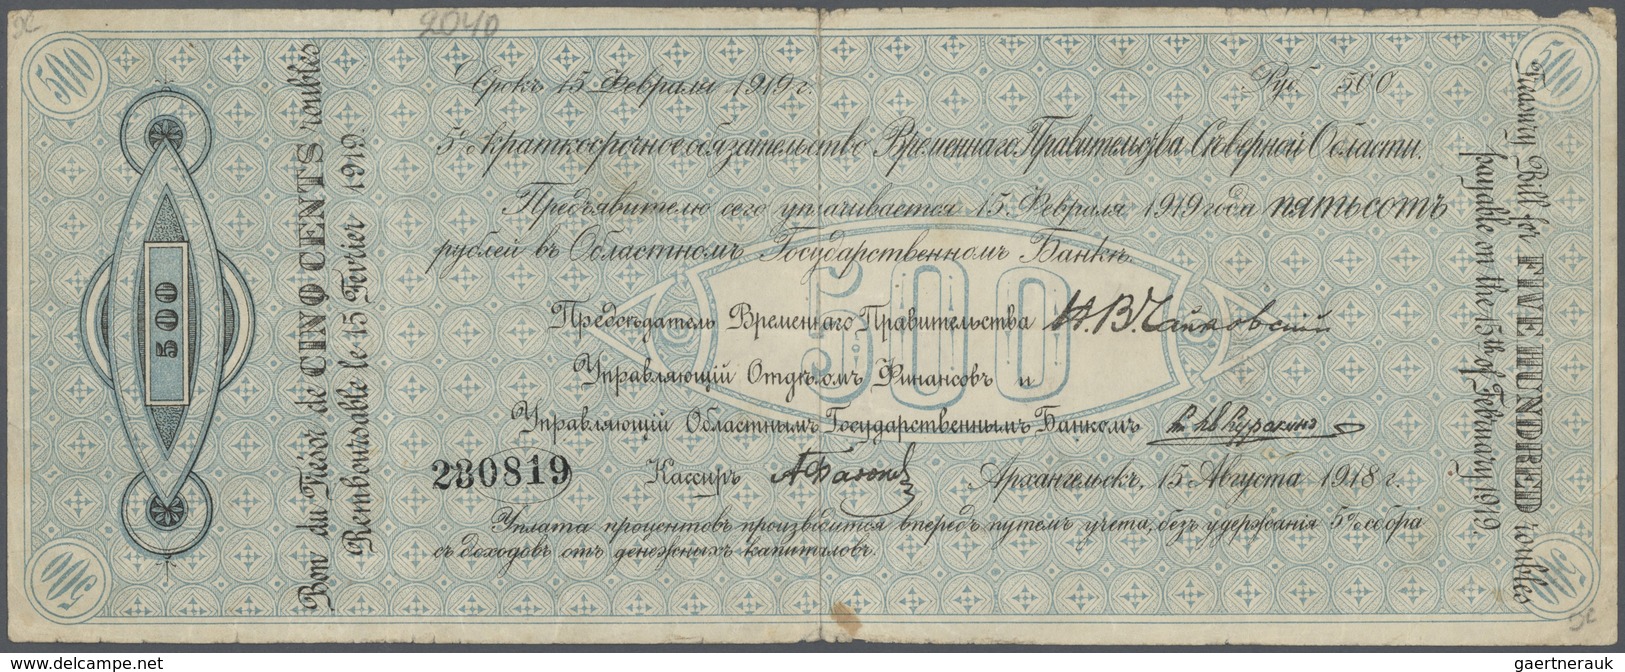 2040
500
500
Срокъ 15 Февраля 1919 г.
Руб. 500
5% краткосрочное обязательство Временнаго Правительства Сѣверной Области.
Предъявителю сего уплачивается 15 Февраля 1919 года пятьсотъ
рублей въ Областномъ Государственномъ Банкѣ.
500
Предсѣдатель Временнаго Правительства Н.В.Чайковскій
Управляющій Отдѣломъ Финансовъ и
Управляющій Областнымъ Государственнымъ Банкомъ
230819
Кассиръ
Архангельскъ, 15 Августа 1918 г.
Уплата процентовъ производится впередъ путемъ учета, безъ удержанія 5% сбора
съ доходовъ отъ денежныхъ капиталовъ.
500
Bon du Trésor de CINQ CENTS roubles
Remboursable le 15 Fevrier 1919.
Treasury Bill for FIVE HUNDRED roubles
payable on the 15th of February 1919.
500
500
gaertnerauk